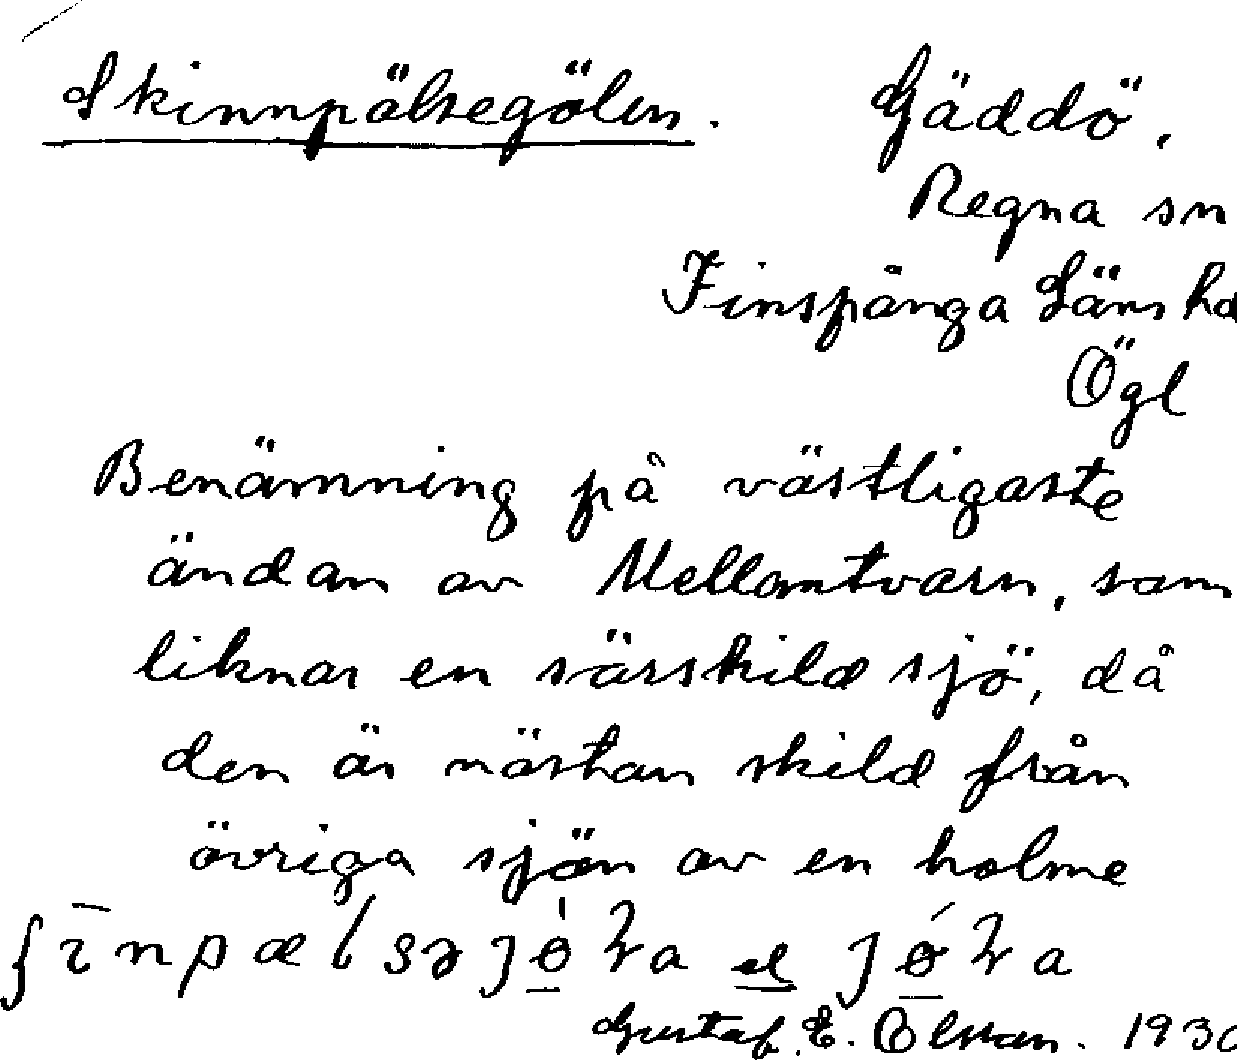 Skinnpälsegölen. Gäddö,
Regna sn
Finspånga Läns hd
Ögl
Benämning på västligaste
ändan av Mellomtvarn, som
liknar en särskild sjö, då
den är nästan skild från
övriga sjön av en holme
el
Gustaf. E. Olsson. 1930